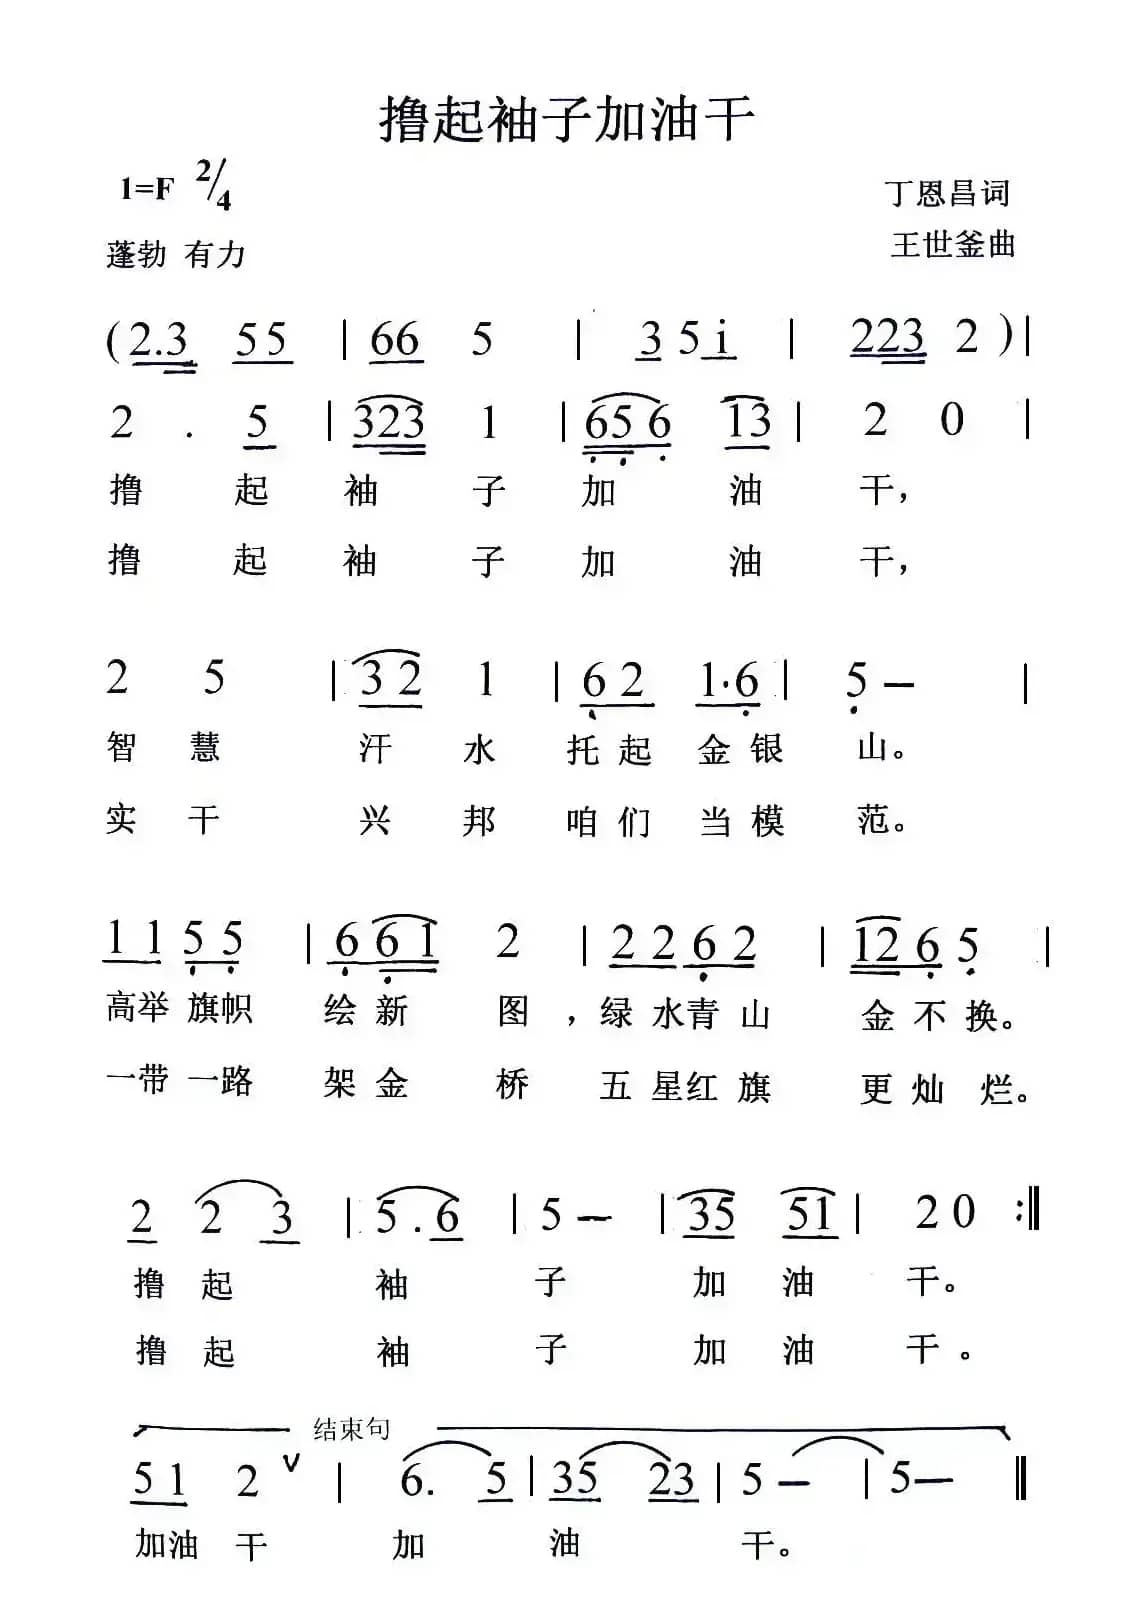 撸起袖子加油干
1=F 2/4
丁恩昌词
蓬勃 有力
王世釜曲
(2.3 55 | 66 5 | 3 5 i | 223 2 )|
2 . 5 | 323 1 | 656 13 | 2 0 |
撸 起 袖 子 加 油 干，
撸 起 袖 子 加 油 干，
2 5 | 3 2 1 | 6 2 1·6 | 5 – |
智 慧 汗 水 托 起 金 银 山。
实 干 兴 邦 咱 们 当 模 范。
1 1 5 5 | 6 6 1 2 | 2 2 6 2 | 12 6 5 |
高举 旗帜 绘 新 图 ，绿 水 青 山 金 不 换。
一带 一路 架 金 桥 五 星 红 旗 更 灿 烂。
2 2 3 | 5 . 6 | 5 – | 35 51 | 2 0 :‖
撸 起 袖 子 加 油 干。
撸 起 袖 子 加 油 干 。
结束句
5 1 2 V | 6. 5 | 35 23 | 5 – | 5 – ‖
加油 干 加 油 干。